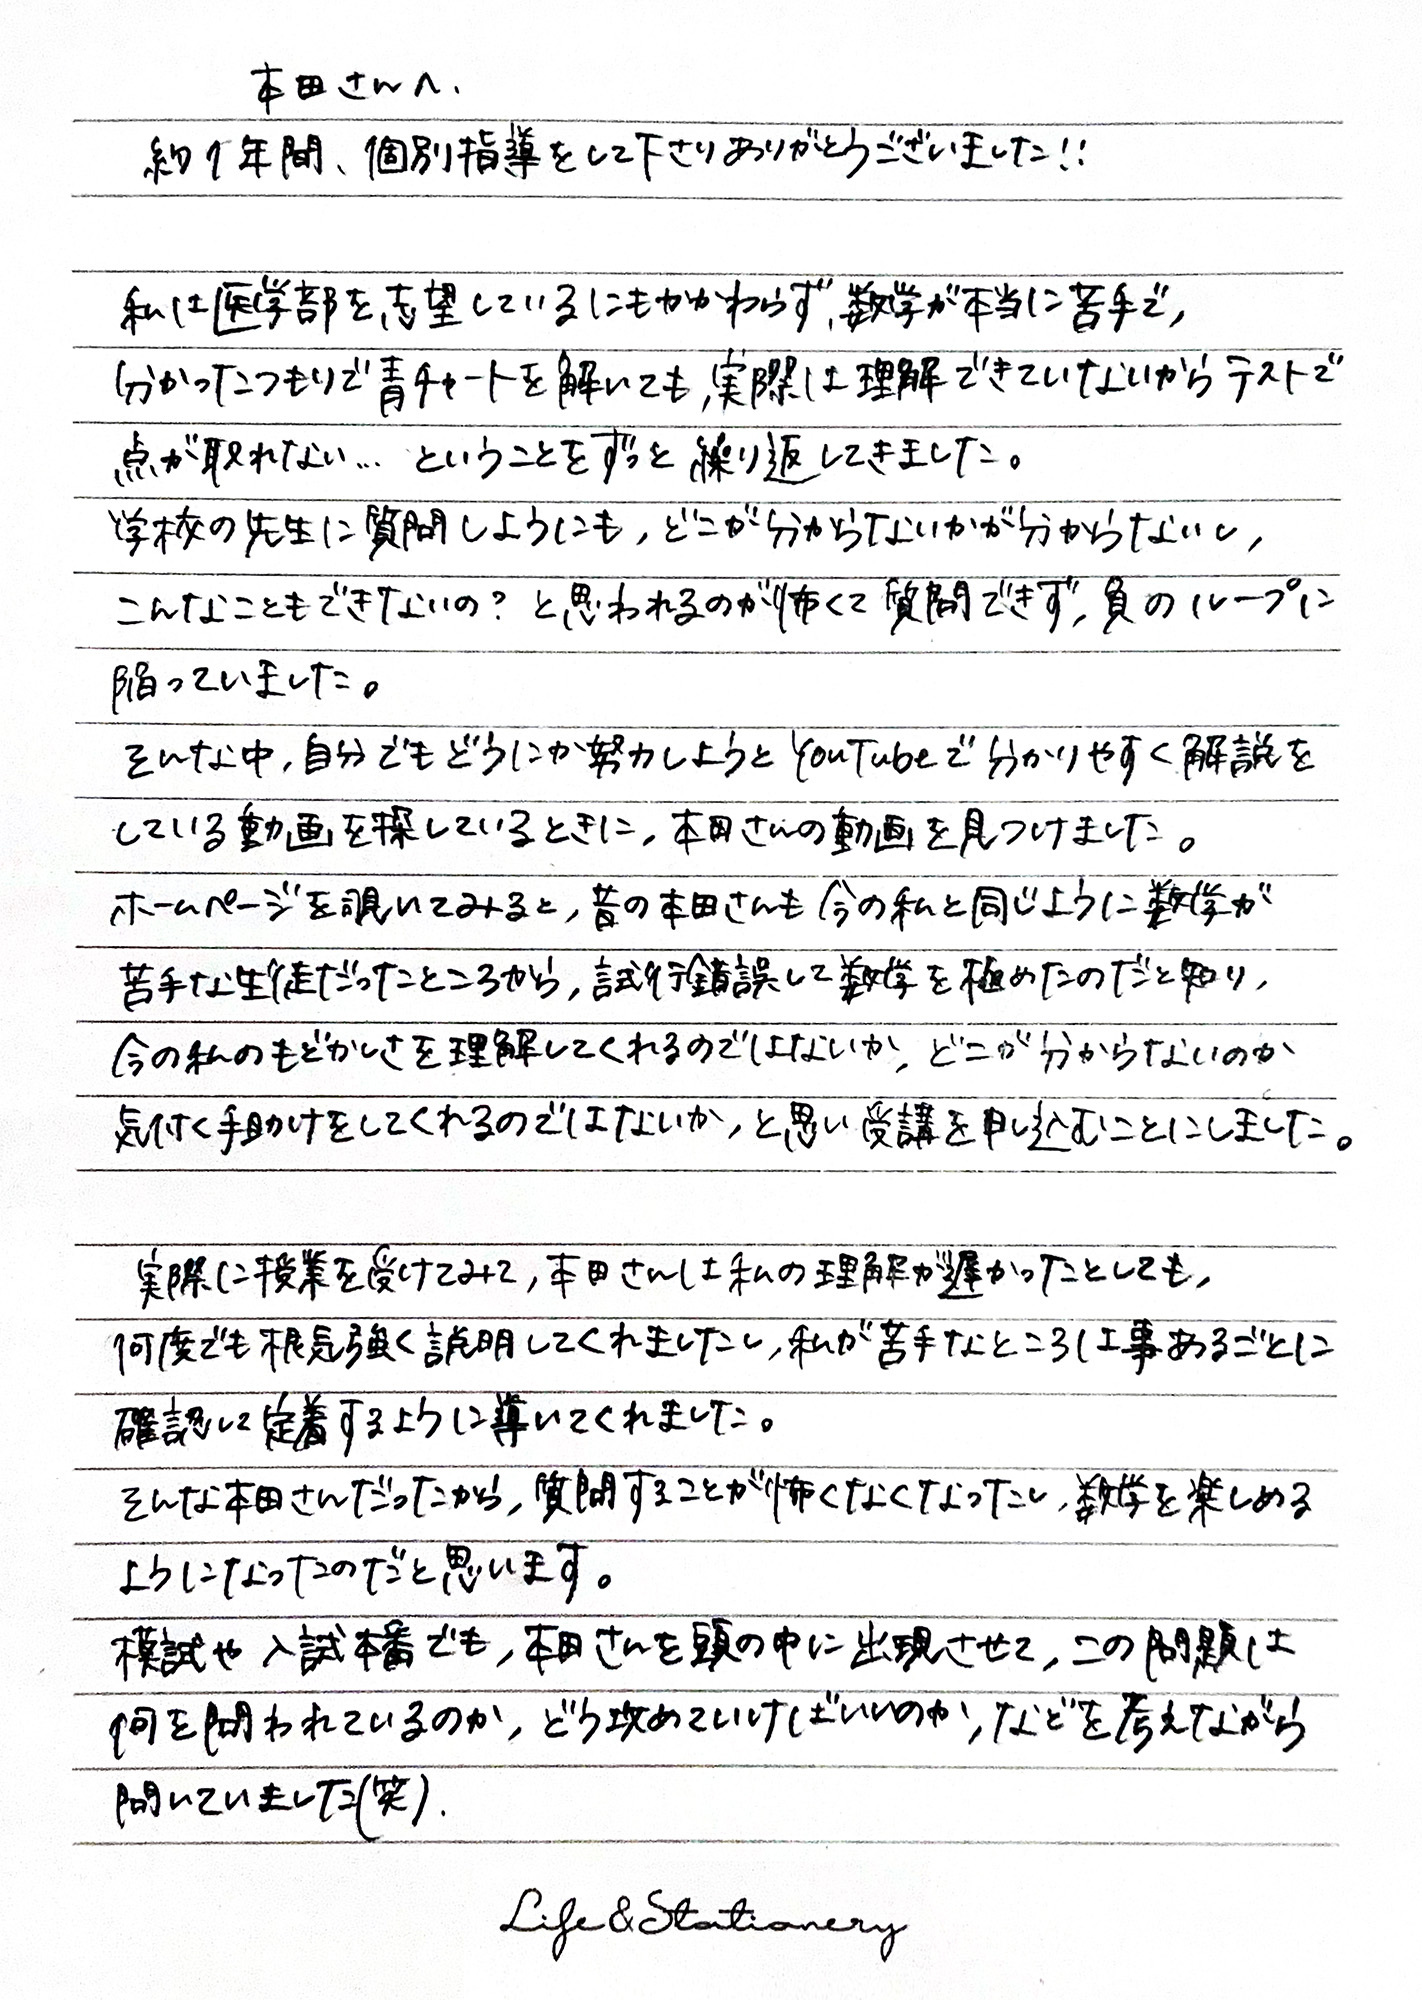 本田さんへ.
約1年間、個別指導をして下さりありがとうございました!!
私は医学部を志望しているにもかかわらず、数学が本当に苦手で,
分かったつもりで青チャートを解いても,実際は理解できていないからテストで
点が取れない… ということをずっと繰り返してきました。
学校の先生に質問しようにも,どこが分からないかが分からないし,
こんなこともできないの?と思われるのが怖くて質問できず,負のループに
陥っていました。
そんな中,自分でもどうにか努力しようとYouTubeで分かりやすく解説を
している動画を探しているときに,本田さんの動画を見つけました。
ホームページを覗いてみると,昔の本田さんも今の私と同じように数学が
苦手な生徒だったところから,試行錯誤して数学を極めたのだと知り,
今の私のもどかしさを理解してくれるのではないか,どこが分からないのか
気付く手助けをしてくれるのではないか,と思い受講を申し込むことにしました。
実際に授業を受けてみて,本田さんは私の理解が遅かったとしても,
何度でも根気強く説明してくれましたし,私が苦手なところは事あるごとに
確認して定着するように導いてくれました。
そんな本田さんだったから,質問することが怖くなくなったし,数学を楽しめる
ようになったのだと思います。
模試や入試本番でも,本田さんを頭の中に出現させて,この問題は
何を問われているのか,どう攻めていけばいいのか,などを考えながら
聞いていました(笑).
Life&Stationery